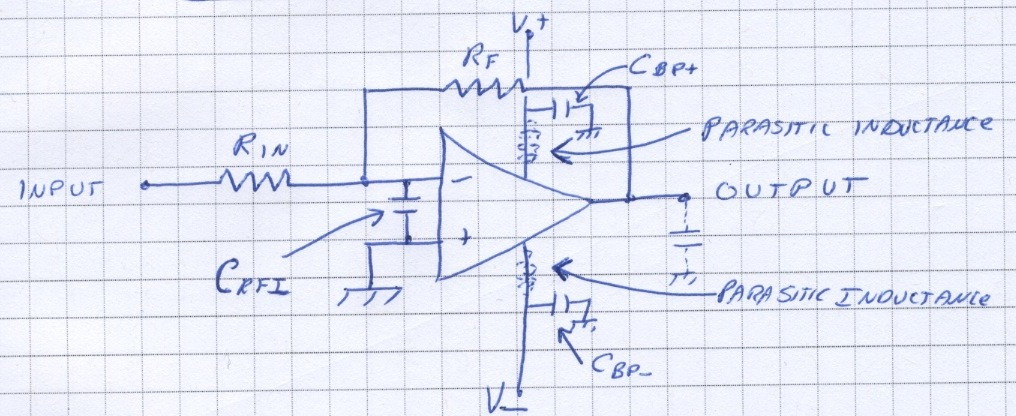 V+
RF
CBP+
PARASITIC INDUCTANCE
RIN
INPUT
-
OUTPUT
+
CRFI
PARASITIC INDUCTANCE
CBP-
V-